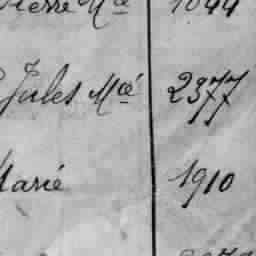 Pierre Mcé 1044
Jules Mcé 2377
Marié 1910